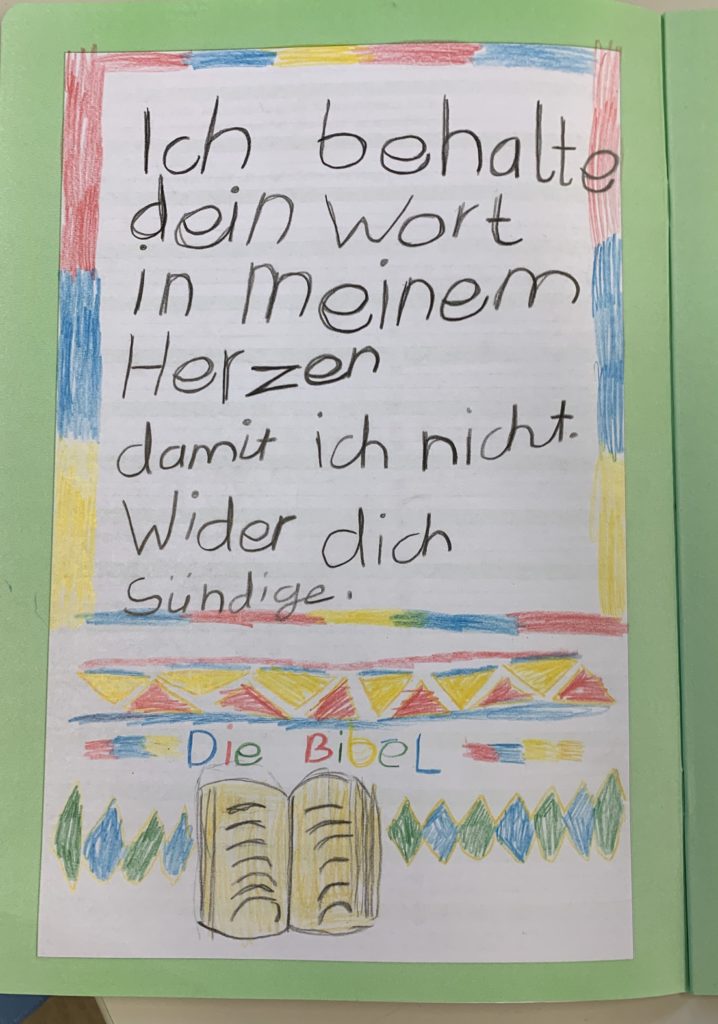 Ich behalte
dein Wort
in meinem
Herzen
damit ich nicht.
Wider dich
Sündige.
Die BibeL